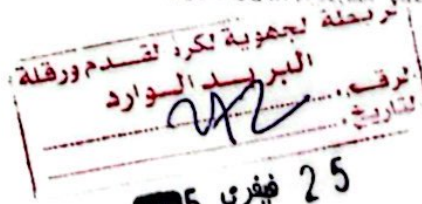 الرابطة الجهوية لكرة القدم ورقلة
البريد الوارد
الرقم
التاريخ
25 فيفري